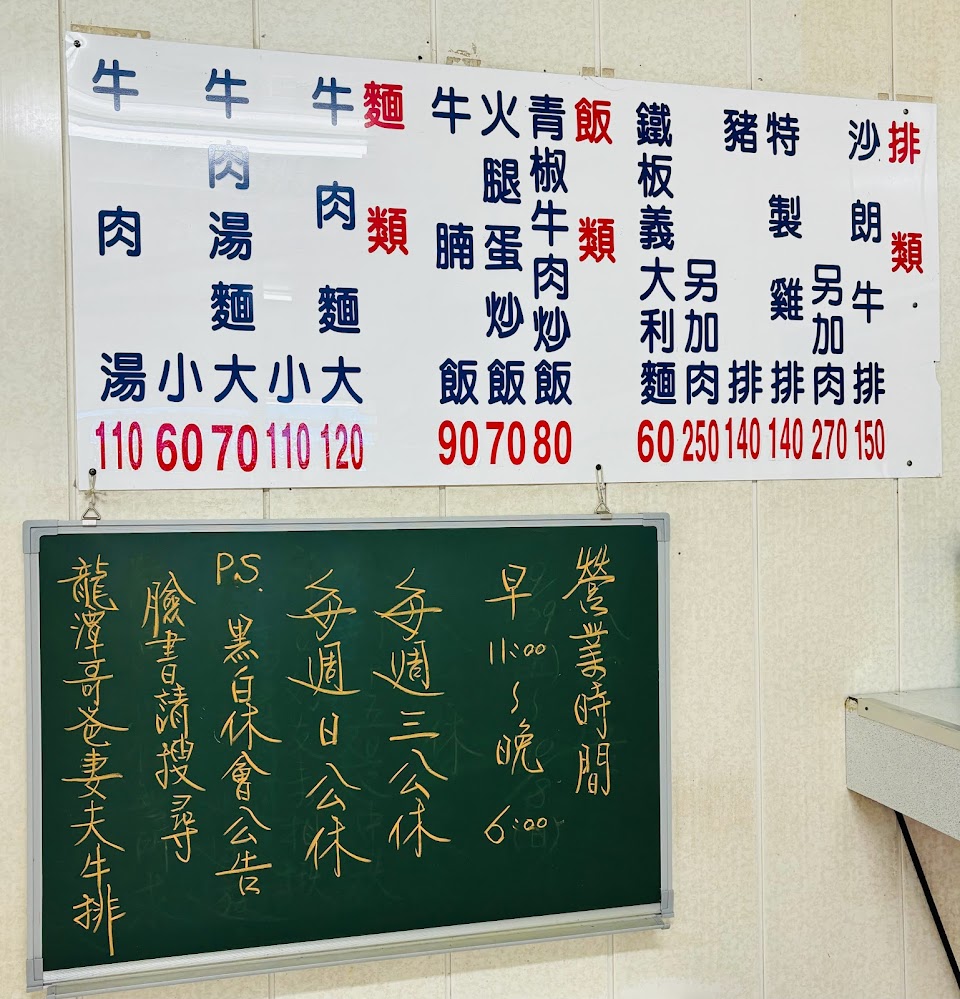 排類
沙朗牛排 150
另加肉 270
特製雞排 140
豬排 140
另加肉 250
鐵板義大利麵 60
飯類
青椒牛肉炒飯 80
火腿蛋炒飯 70
牛腩飯 90
麵類
牛肉麵大 120
小 110
牛肉湯麵大 70
小 60
牛肉湯 110
營業時間
早11:00~晚6:00
每週三公休
每週日公休
P.S. 黑白休會公告
臉書請搜尋
龍潭哥爸妻夫牛排